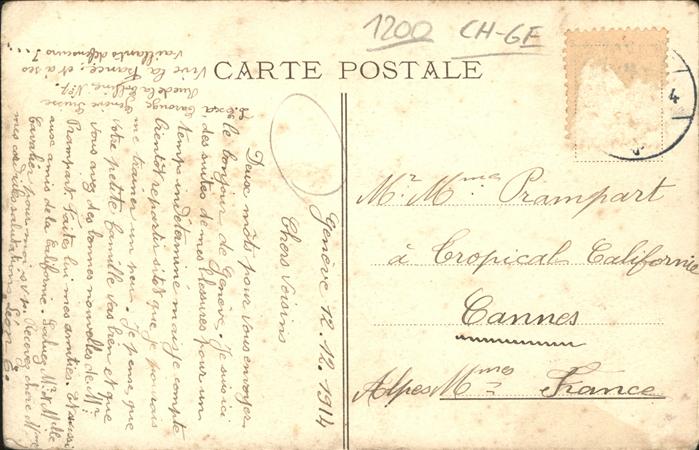 1200 CH-GE
CARTE POSTALE
4
Genève 12.12.1914
Chers Voisins
Deux mots pour vous envoyer
le bonjour de Genève. Je suis ici
des suites de mes blessures pour un
temps indéterminé mais je compte
bientôt repartir sitôt que je pourrais
me trainer un peu. Je pense que
votre petite famille vas bien et que
vous avez des bonnes nouvelles de Mr
Prampart faites lui mes amitiés. Et aussi
aux amis de la Californie. Mr et Mlle
Cavalier pour moi s.v.p. Recevez chère Mme
mes cordiales salutations. Léon
Carouge Genève Suisse
Rue de la No 7.
Vive la France, et a ses
Vaillants défenseurs !...
Mr Mmes Prampart
à Tropical Californie
Cannes
Alpes Mmes France